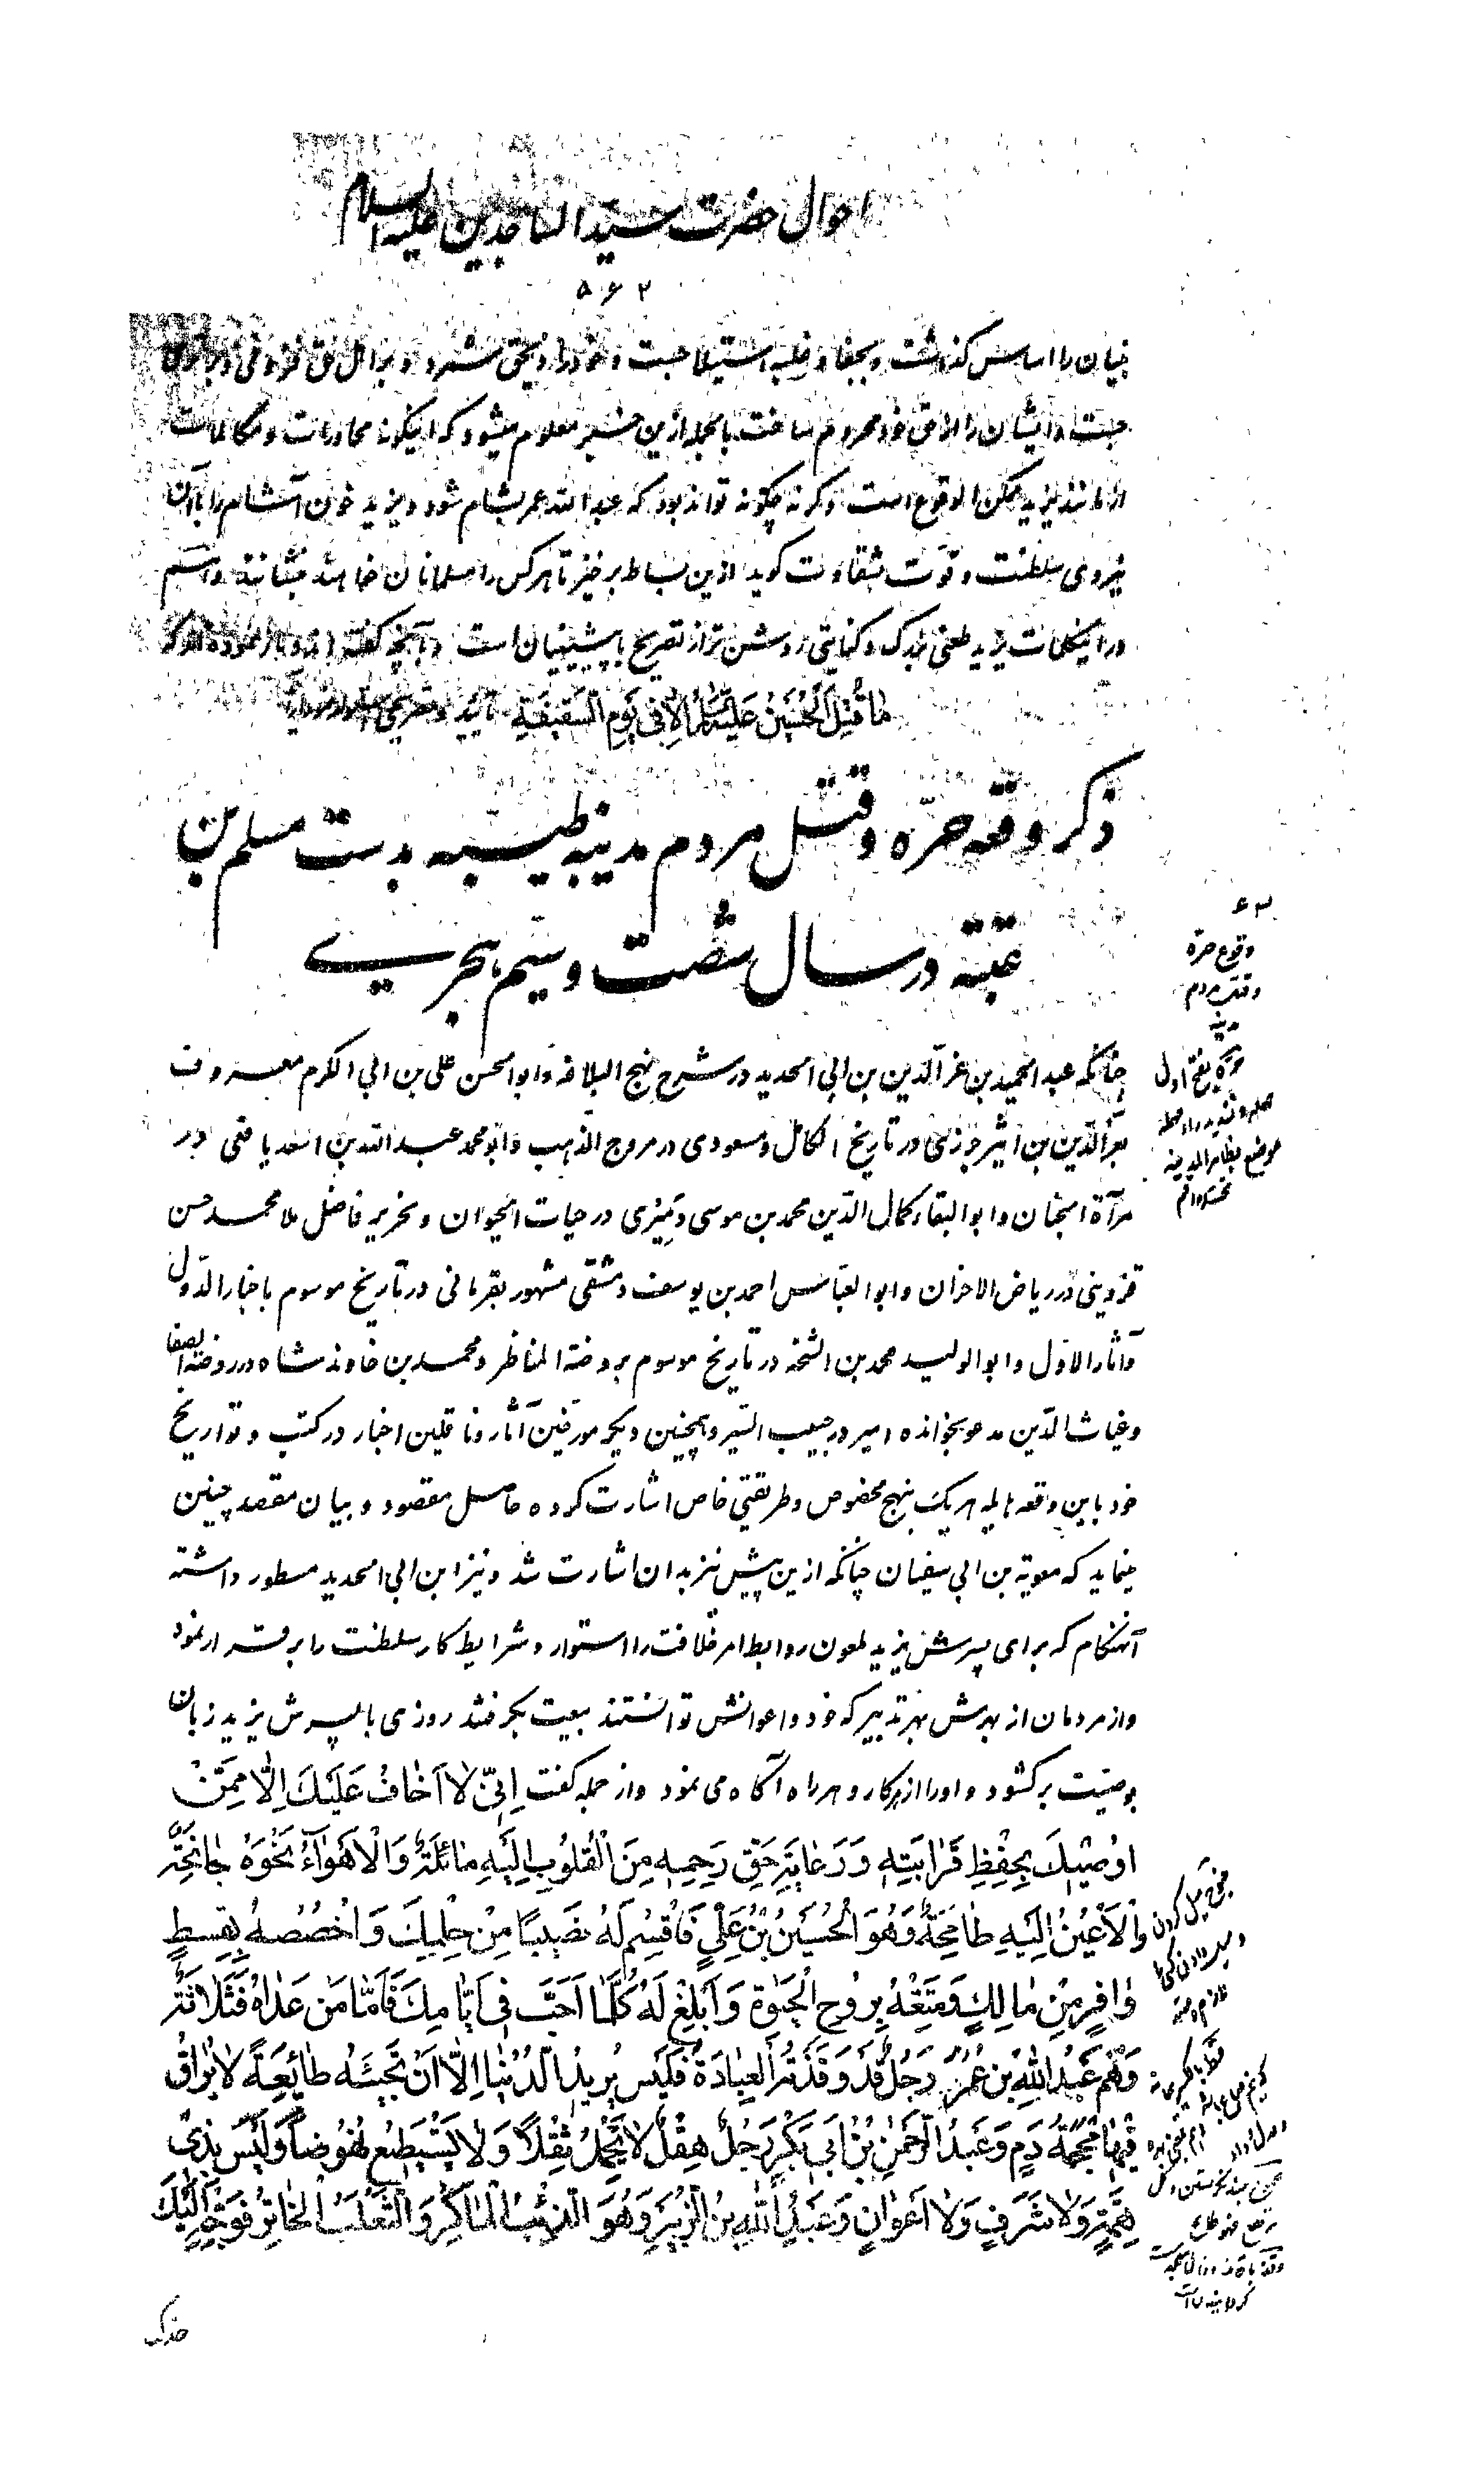 احوال حضرت سید الساجدین علیه السلام
۵۶۲
بنیان را اساس گذاشت و بجفا و غلبه استیلا جست و خود را ذیحق شمرد و بر اهل حق فزونی و برتری
جست و ایشان را از حق خود محروم ساخت بالجمله ازین خبر معلوم میشود که اینگونه محاورات و مکالمات
از مانند یزید ممکن الوقوع است وگرنه چگونه تواند بود که عبدالله عمر بشام شود و یزید خون آشام را با آن
نیروی سلطنت و قوت شقاوت گوید ازین بساط برخیز تا هر کس را مسلمانان خواهند بنشانند و اسم
در اینکلمات یزید طعنی بزرگ و کنایتی روشن تر از تصریح با پیشینیان است و آنچه گفته اند
ما قُتِلَ الْحُسَیْنُ عَلَیْهِ السَّلامُ اِلّا فی یَوْمِ السَّقیفَةِ تائید
ذکر وقعه حرّه و قتل مردم مدینه طیبه بدست مسلم بن
عقبه در سال شصت و سیم هجری
چنانکه عبد الحمید بن عزالدین بن ابی الحدید در شرح نهج البلاغه و ابو الحسن علی بن ابی الکرم معروف
بعزالدین بن اثیر جزری در تاریخ الکامل و مسعودی در مروج الذهب و ابو محمد عبد الله بن اسعد یافعی در
مرآة الجنان و ابو البقاء کمال الدین محمد بن موسی دمیری در حیات الحیوان و نحریر فاضل ملا محمد حسن
قزوینی در ریاض الاحزان و ابو العباس احمد بن یوسف دمشقی مشهور بقرمانی در تاریخ موسوم باخبار الدول
و آثار الاول و ابو الولید محمد بن الشحنه در تاریخ موسوم بروضة المناظر و محمد بن خاوند شاه در روضة الصفا
و غیاث الدین مدعو بخوانده امیر در حبیب السیر و همچنین دیگر مورخین آثار و ناقلین اخبار در کتب و تواریخ
خود باین وقعه هایله هر یک بنهج مخصوص و طریقتی خاص اشارت کرده حاصل مقصود و بیان مقصد چنین
مینماید که معویة بن ابی سفیان چنانکه ازین پیش نیز بدان اشارت شد و نیز ابن ابی الحدید مسطور داشته
آنهنگام که برای پسرش یزید ملعون روابط امر خلافت را استوار و شرایط کار سلطنت را برقرار نمود
و از مردمان از بهرش بهر تدبیر که خود و اعوانش توانستند بیعت بگرفتند روزی با پسرش یزید زبان
بوصیت برگشود و او را از هر کار و هر راه آگاه می نمود و از جمله گفت اِنّی لا اَخافُ عَلَیْکَ اِلّا مِمَّنْ
اوُصیکَ بِحِفْظِ قَرابَتِهِ وَ رَعایَةِ حَقِّ رَحِمِهِ مِنَ الْقُلوُبِ اِلَیْهِ مائِلَةٌ وَ الْاَهْواءُ نَحْوَهُ جانِحَةٌ
وَ الْاَعْیُنُ اِلَیْهِ طامِحَةٌ وَ هُوَ الْحُسَیْنُ بْنُ عَلِیٍّ فَاقْسِمْ لَهُ نَصیبًا مِنْ حِلْمِکَ وَ اخْصُصْهُ بِقِسْطٍ
وافِرٍ مِنْ مالِکَ وَ مَتِّعْهُ بِرُوحِ الْحَیٰوةِ وَ اَبْلِغْ لَهُ کُلَّما اَحَبَّ فی اَیّامِکَ فَاَمّا مَنْ عَداهُ فَثَلاثَةٌ
وَ هُمْ عَبْدُ اللهِ بْنُ عُمَرَ رَجُلٌ قَدْ وَقَذَتْهُ الْعِبادَةُ فَلَیْسَ یُریدُ الدُّنْیا اِلّا اَنْ تَجیئَهُ طائِعَةً لا تُراقُ
فیها مِحْجَمَةُ دَمٍ وَ عَبْدُ الرَّحْمنِ بْنُ اَبی بَکْرٍ رَجُلٌ هِقْلٌ لا یَحْمِلُ ثِقْلاً وَ لا یَسْتَطیعُ نُهُوضاً وَ لَیْسَ بِذی
هِمَّةٍ وَ لا شَرَفٍ وَ لا اَعْوانٍ وَ عَبْدُ اللهِ بْنُ الزُّبَیْرِ وَ هُوَ الذِّئْبُ الْماکِرُ وَ الثَّعْلَبُ الْخاتِرُ فَوَجِّهْ اِلَیْهِ
۶۳
وقوع حره
و قتل مردم
مدینه
حره بفتح اول
موضع بظاهر المدینه